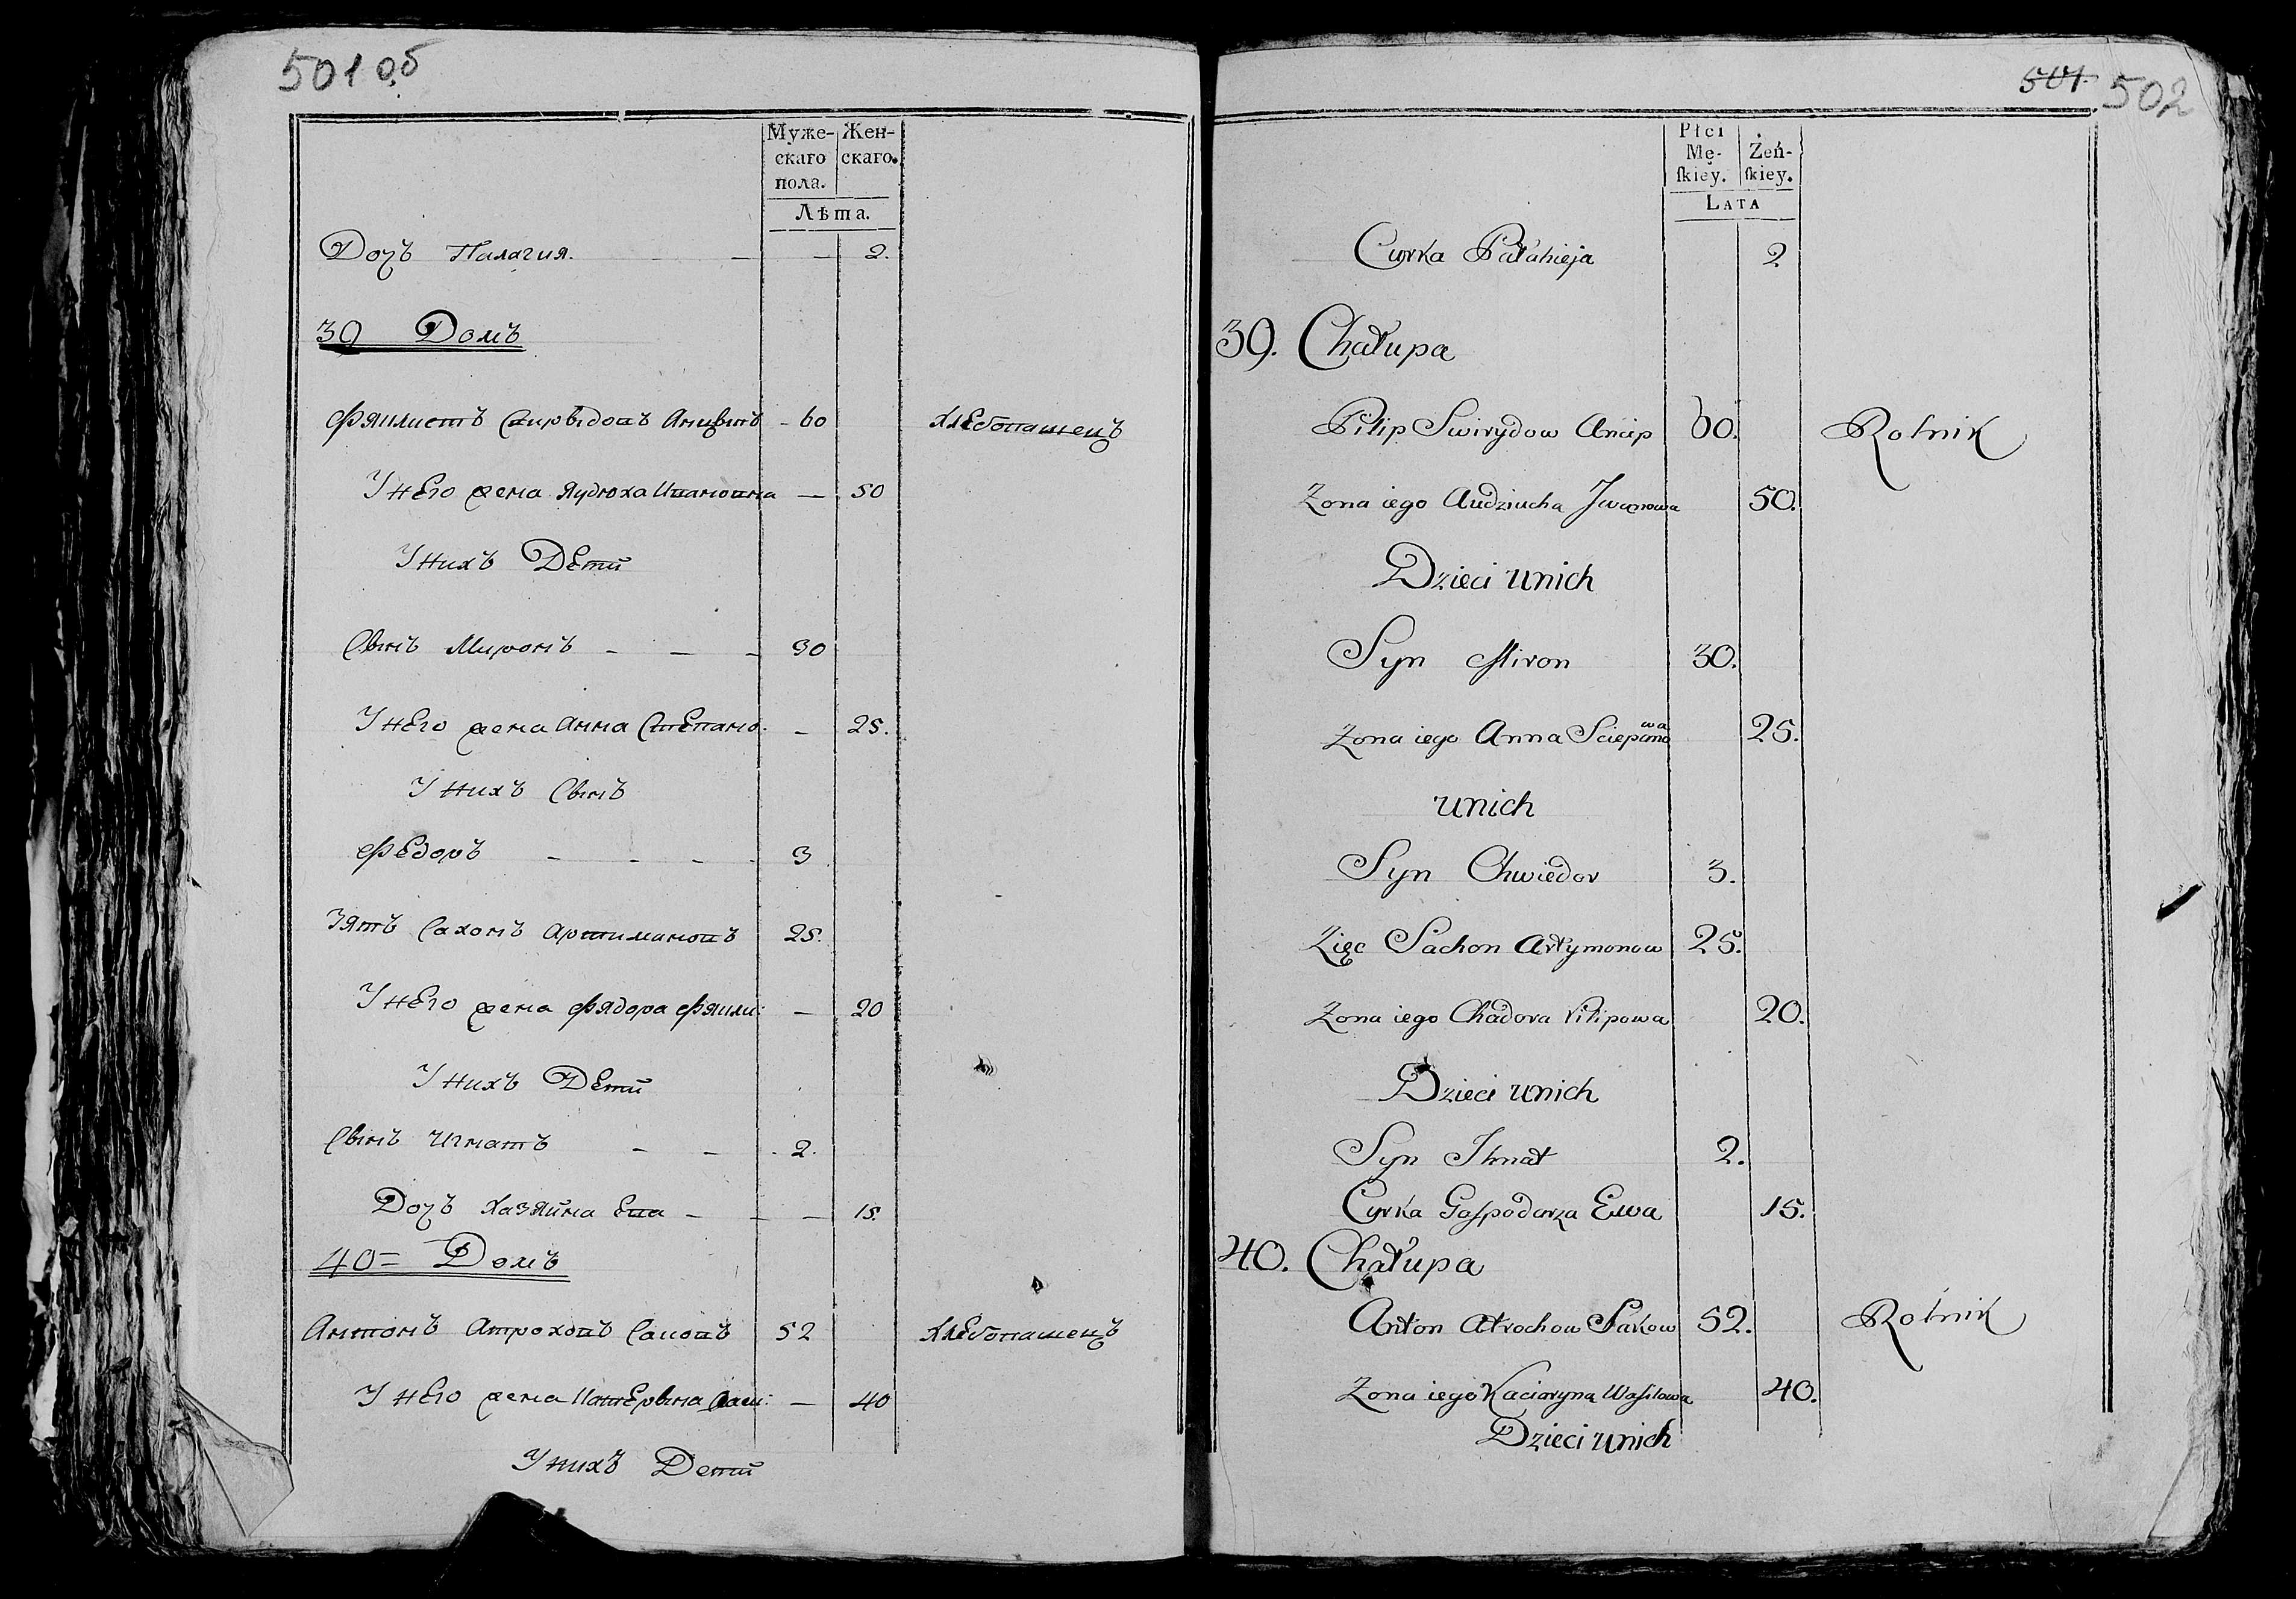 501 об
Муже-
скаго
пола.
Жен-
скаго.
Лѣта.
Дочь Палагия. - - - 2.
39 Домъ
Фяилистъ Свирыдовъ - 60 хлебопашецъ
У него жена Яудюха Ивановна - 50
У нихъ Дети
Сынъ Миронъ - - - 30
У него жена Анна Степано: - 25.
У нихъ Сынъ
Федоръ - - - - 3
Зять Сахонъ Артимановъ 25.
У него жена Фядора Фяили: - 20
У нихъ Дети
Сынъ Игнатъ - - - 2.
Дочь хазяйна Ева - - - 15.
40= Домъ
Антонъ Атроховъ 52 хлебопашецъ
У него жена - 40
У нихъ Дети
501. 502
Płci
Mę-
skiey.
Żeń-
skiey.
LATA
Curka Pałahieja 2
39. Chałupa
Pilip Swirydow Ancip 60. Rolnik
Zona iego Audziucha Jwanowa 50.
Dzieci unich
Syn Miron 30.
Zona iego Anna Sciepanowa 25.
unich
Syn Chwiedor 3.
Zięc Sachon Artymonow 25.
Zona iego Chadora Pilipowa 20.
Dzieci unich
Syn Ihnat 2.
Cyrka Gospodarza Ewa 15.
40. Chałupa
Anton Atrochow Sakow 52. Rolnik
Zona iego Kaciaryna Wasilowa 40.
Dzieci unich